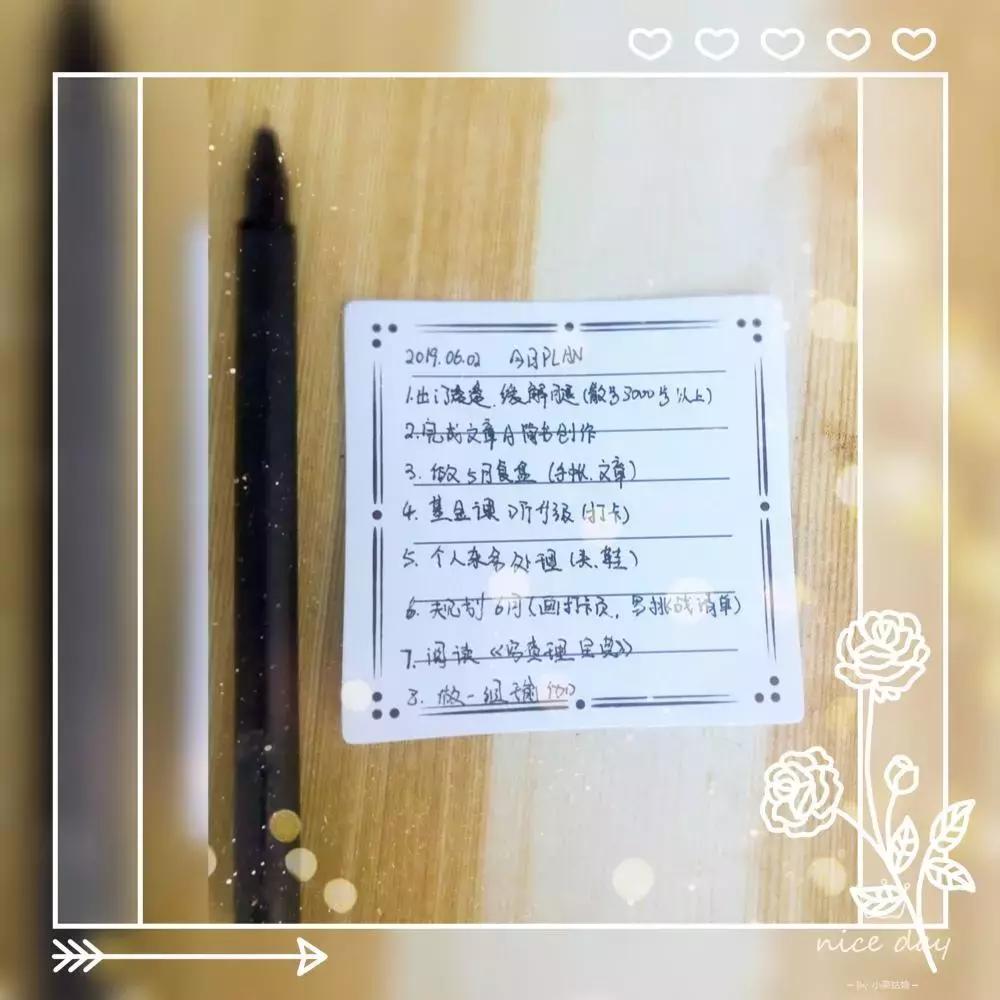 2019.06.02 今日PLAN
1.出门透透,缓解腿(散步3000步以上)
2.完成文章A简书创作
3.做5月复盘(手帐.文章)
4.基金课 听升级(打卡)
5.个人杂务处理(头.鞋)
6.规划6月(画打卡页,写挑战清单)
7.阅读《写真理宝典》
8.做一组
nice day
小菜姑娘